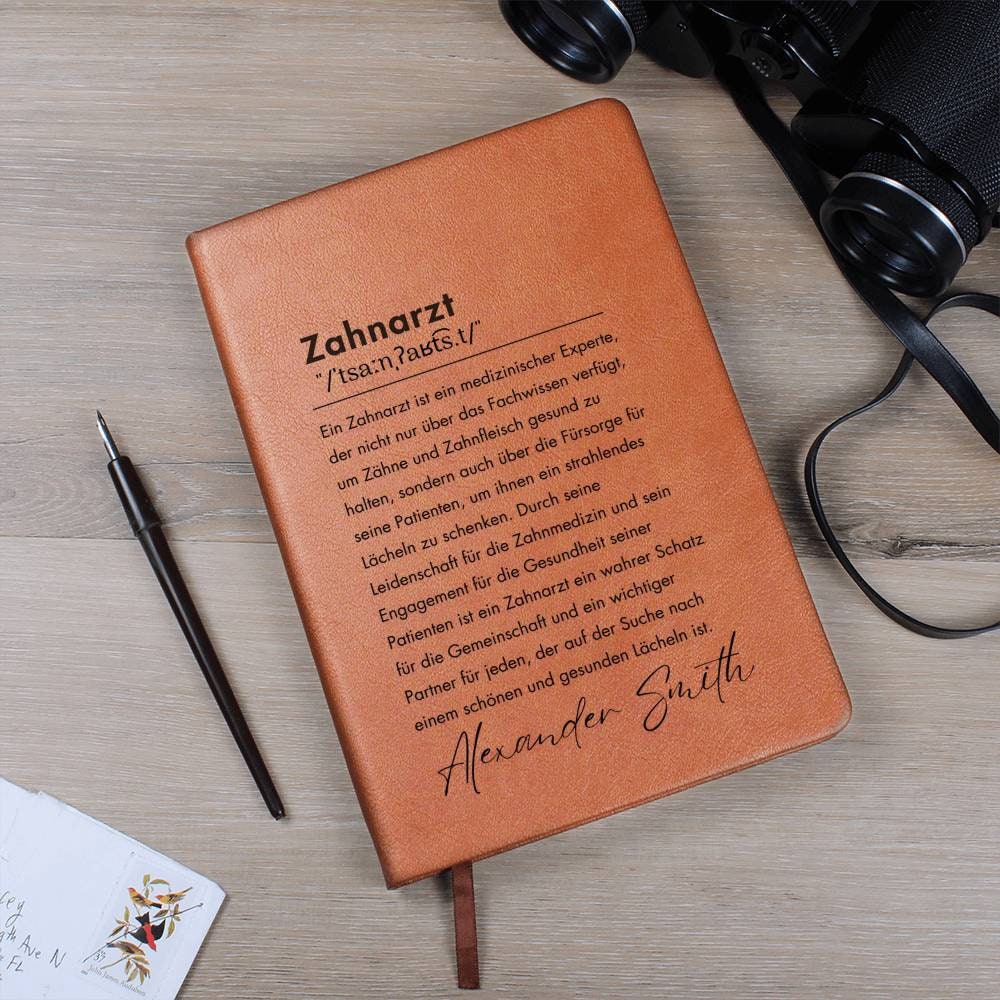 Zahnarzt
"/ˈtsaːnˌʔaʁt͡s.t/"
Ein Zahnarzt ist ein medizinischer Experte,
der nicht nur über das Fachwissen verfügt,
um Zähne und Zahnfleisch gesund zu
halten, sondern auch über die Fürsorge für
seine Patienten, um ihnen ein strahlendes
Lächeln zu schenken. Durch seine
Leidenschaft für die Zahnmedizin und sein
Engagement für die Gesundheit seiner
Patienten ist ein Zahnarzt ein wahrer Schatz
für die Gemeinschaft und ein wichtiger
Partner für jeden, der auf der Suche nach
einem schönen und gesunden Lächeln ist.
Alexander Smith
Ave N
FL
37
John James Audubon